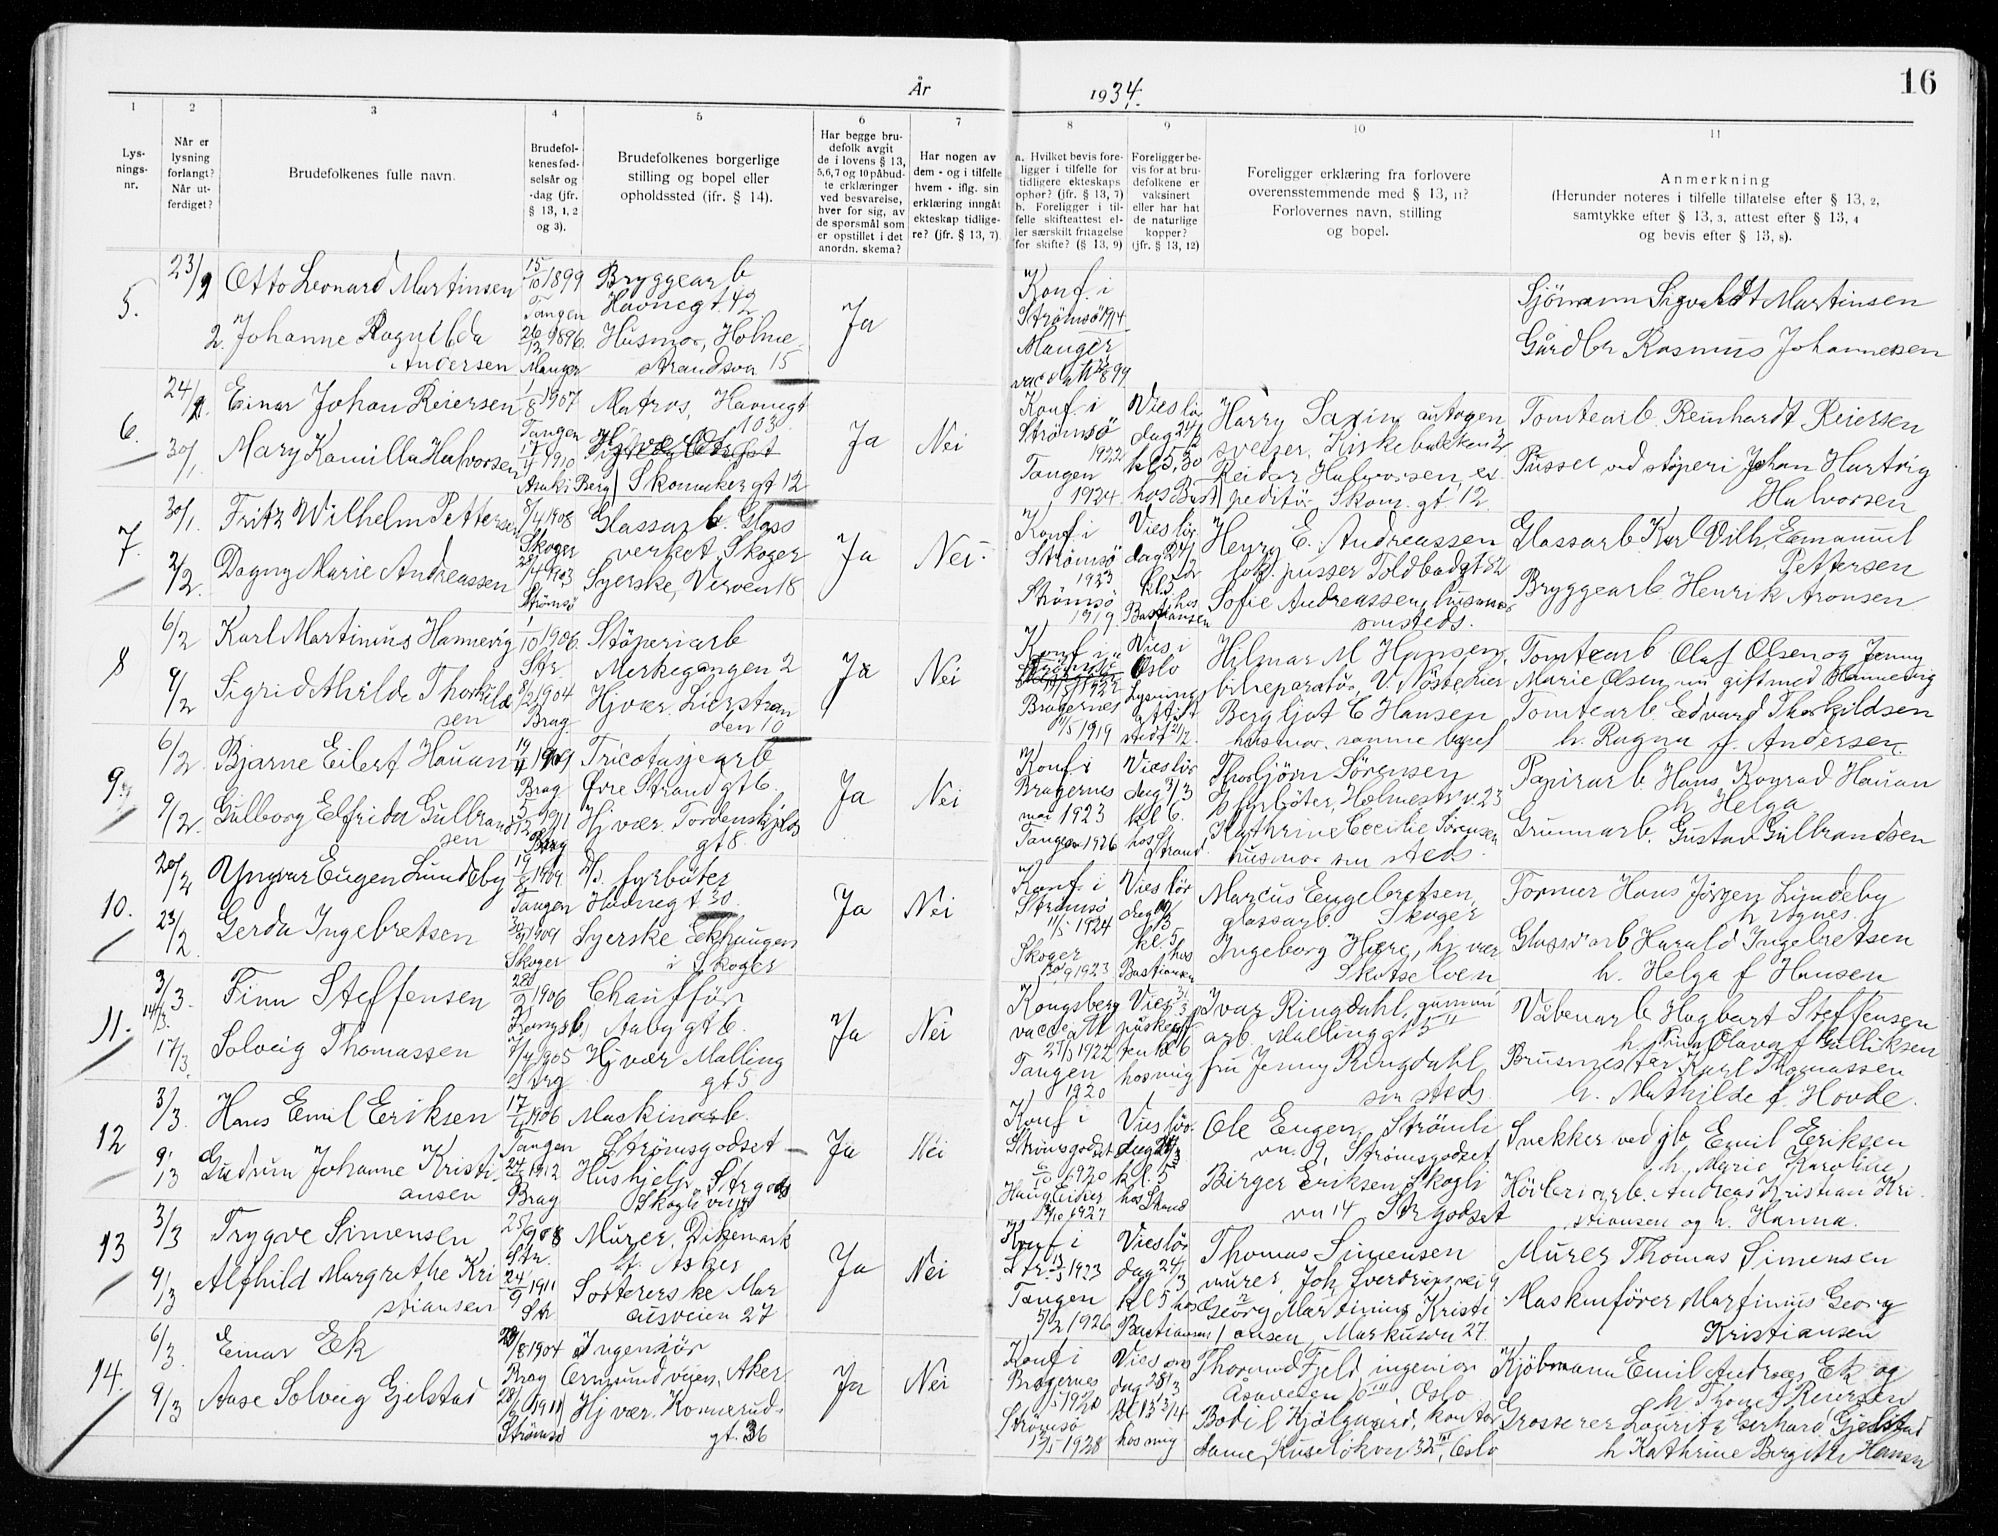 År 1934.
16
1 2 3 4 5 6 7 8 9 10 11
Lys-
nings-
nr.
Når er
lysning
forlangt?
Når ut-
ferdiget?
Brudefolkenes fulle navn.
Brudefol-
kenes fød-
selsår og
-dag (jfr.
§ 13, 1, 2
og 3).
Brudefolkenes borgerlige
stilling og bopel eller
opholdssted (ifr. § 14).
Har begge bru-
defolk avgit
de i lovens § 13,
5,6,7 og 10 påbud-
te erklæringer
ved besvarelse,
hver for sig, av
de spørsmål som
er opstillet i det
anordn. skema?
Har nogen av
dem - og i tilfelle
hvem - iflg. sin
erklæring inngåt
ekteskap tidlige-
re? (jfr. § 13, 7).
a. Hvilket bevis fore-
ligger i tilfelle for
tidligere ekteskaps
ophør? (jfr. § 13, 7)
b. Foreligger i til-
felle skifteattest el-
ler særskilt fritagelse
for skifte? (§ 13, 9)
Foreligger be-
vis for at bru-
defolkene er
vaksinert
eller har hat
de naturlige
kopper?
(jfr. § 13, 12)
Foreligger erklæring fra forlovere
overensstemmende med § 13, 11?
Forlovernes navn, stilling
og bopel.
Anmerkning
(Herunder noteres i tilfelle tillatelse efter § 13, 2,
samtykke efter § 13, 3, attest efter § 13, 4
og bevis efter § 13, 8).
5.
23/2
Otto Leonard Martinsen
2. Johanne Ragnilda
Andersen
15/10 1899
Tangen
26/12 1896.
Manger
Bryggearb
Havnegt. 42.
Husmor, Holme-
strandsvn 15
Ja
Konf. i
Strømsø 1914
Manger
Sjömann Sigvaldt Martinsen
Gårdbr Rasmus Johannesen
6.
24/
30/1
Einar Johan Reiersen
Mary Kamilla Halvorsen
1/8 1907
Tangen
17/4 1910
Matros, Havnegt
103.
Skomakergt 12
Ja
Nei
Konf. i
Strømsø
1922
Tangen
1924
Vies lör
dag
kl 5,30
hos
Harry
Kirkebakken 2
Reidar Halvorsen, ex
peditör Skom. gt 12.
Tomtearb. Reinhardt Reiersen
Pusser ved støperi Johan Hartvig
Halvorsen
7.
30/1.
2/2.
Fritz Wilhelm Petterse
Dagny Marie Andreassen
8/4 1908
Skoger
/4 1903
Strømsø
Glassarb. Glass
verket, Skoger
Syerske, Verven 18
Ja
Nei.
Konf. i
Strømsø
1923
Strømsø
1919
Vies lör
dag 24/2
kl. 5
hos
Bastiansen
Henry E. Andreassen
pusser Toldbodgt 82
Sofie Andreassen, husmor
smsteds.
Glassarb. Karl Vilh. Emanuel
Pettersen
Bryggearb Henrik Aronsen
8
6/2
9/2
Karl Martinius Hannevig
Sigrid Alvilde Thorkild
sen
1/10 1906.
Str.
8/2 1904
Brag.
Støperiarb
Merkegangen 2
Hj vær. Lierstran
den 10
Ja
Nei
Konf i
1922
Bragernes
1919
Vies i
Oslo
Lysning
attest
Hilmar M Hansen
bilreparatör, V. Nöstehier
Bergljot C Hansen
husmor, samme bopel
Tomtearb Olaf Olsen og Jenny
Marie Olsen, nu gift med Hannevig
Tomtearb. Edvard Thorkildsen
h. Ragna f. Andersen
9.
6/2.
9/2.
Bjarne Eilert Hauan
Gulborg Elfrida Gulbrand
sen
19/4 1909
Brag
5/12 1911
Brag
Tricotasjearb
Øvre Strandgt 6.
Hj vær. Tordenskjolds
gt 8.
Ja
Nei
Konf i
Bragernes
1923
Tangen 1926
Vies lör
dag 3/3
kl 6.
hos
Strand
Thorbjørn Sörensen
fyrböter, Holmestr.v. 23
Kathrine Cecilie Sörensen
husmor sm steds.
Papirarb. Hans Konrad Hauan
h. Helga
Grunnarb. Gustav Gulbrandsen
10.
20/2
23/2.
Yngvar Eugen Lundeby
Gerda Ingebretsen
19/ 1909.
Tangen
1909
Skoger
D/S. fyrböter
Havnegt 30.
Syerske Eekhaugen
i Skoger
Ja
Nei
Konf. i
Strømsø
1924
Skoger
1923
Vies lör
dag
kl 5
hos
Bastiansen
Marcus Engebretsen,
glassarb. Skoger
Ingeborg Høre, hj vær
Skotselven
Former Hans Jörgen Lundeby
h. Agnes.
Glassarb Harald Ingebretsen
h. Helga f Hansen
11.
3/3.
17/3.
Finn Steffensen
Solveig Thomassen
1906
Kongsb.
7/4 1905
Brag
Chaufför
Aabygt 6.
Hj vær Malling
gt 5
Ja
Nei
Kongsberg
1922
Tangen
1920
Vies
hos mig
Ivar Ringdahl, gummi
arb. Mallinggt 5
fru Jenny Ringdahl
sm steds.
Våbenarb Hagbart Steffensen
Olava f Gulliksen
Brusmester Karl Thomassen
h. Mathilde f. Hovde.
12
3/3.
9/3
Hans Emil Eriksen
Gudrun Johanne Kristi-
ansen
17/ 1906
Tangen
1912
Brag
Maskinarb.
Strømsgodset
Hushjelp Strgods
Skogliveien
Ja
Nei
Konf i
Strømsgodset
1920
1927
Vies lör
dag
kl. 5
hos Strand
Ole Eugen Strömli
vn. 9, Strømsgodset
Birger Eriksen, Skogli
vn 14 Strgodset
Snekker ved jb Emil Eriksen
h. Marie Karoline
Hövleriarb. Andreas Kristian Kri-
stiansen og h. Hanna.
13
3/3
9/3
Trygve Simensen
Alfhild Margrethe Kri
stiansen
1908
Str.
24/9 1911
Str
Murer, Dikemark
st. Asker
Sortererske Mar
cusveien 27
Ja
Nei
Konf i
1923
Tangen
1926
Vies lör
dag 24/3
kl 5 hos
Bastiansen
Thomas Simensen
murer, Joh. Sverdrupsvei 9
Georg Martinius Kristi
ansen, Markusvn 27.
Murer Thomas Simensen
Maskinförer Martinius Georg
Kristiansen
14.
6/3
9/3
Einar Ek
Aase Solveig Gjelstad
/8 1904
Brag
28/ 1911
Strømsø
Ingeniör
Ormsundveien, Aker
Hj vær. Konnerud-
gt. 36
Ja
Nei
Konf i
Bragernes
1920
Strømsø
1928
Vies ons
dag 28/3
hos mig
Thormod Fjeld, ingeniör
Oslo
Bodil Hjälgaard, kontor
dame, Ruselökvn 32, Oslo
Kjöbmann Emil Andreas Ek og
h. Thone f Reiersen
Grosserer Lauritz Gerhard Gjelstad
h Kathrine Birgitte Hansen